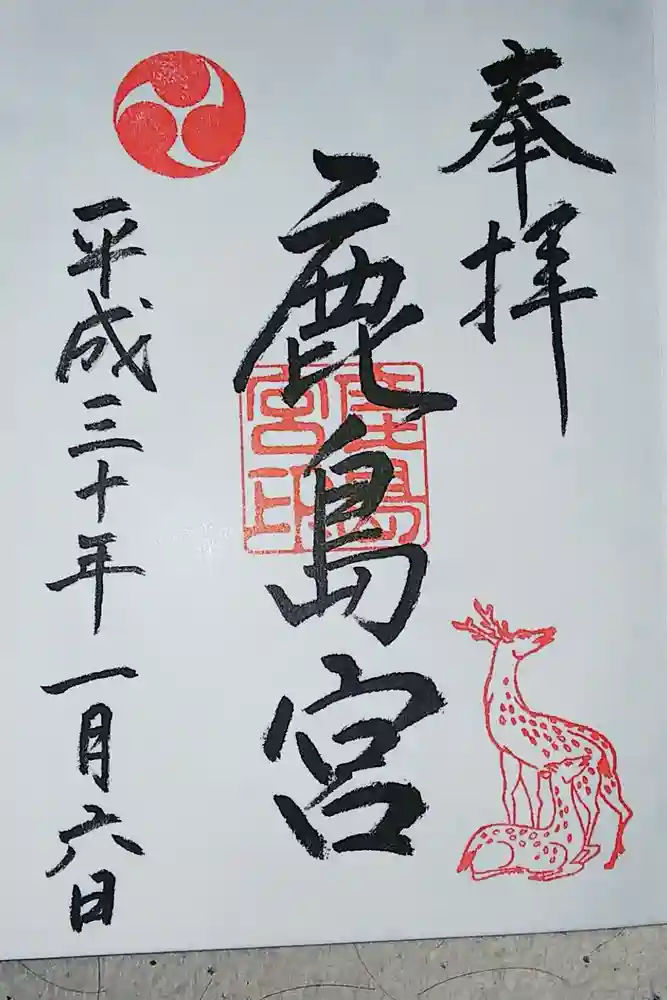 奉拝
鹿島宮
鹿島宮印
平成三十年一月六日